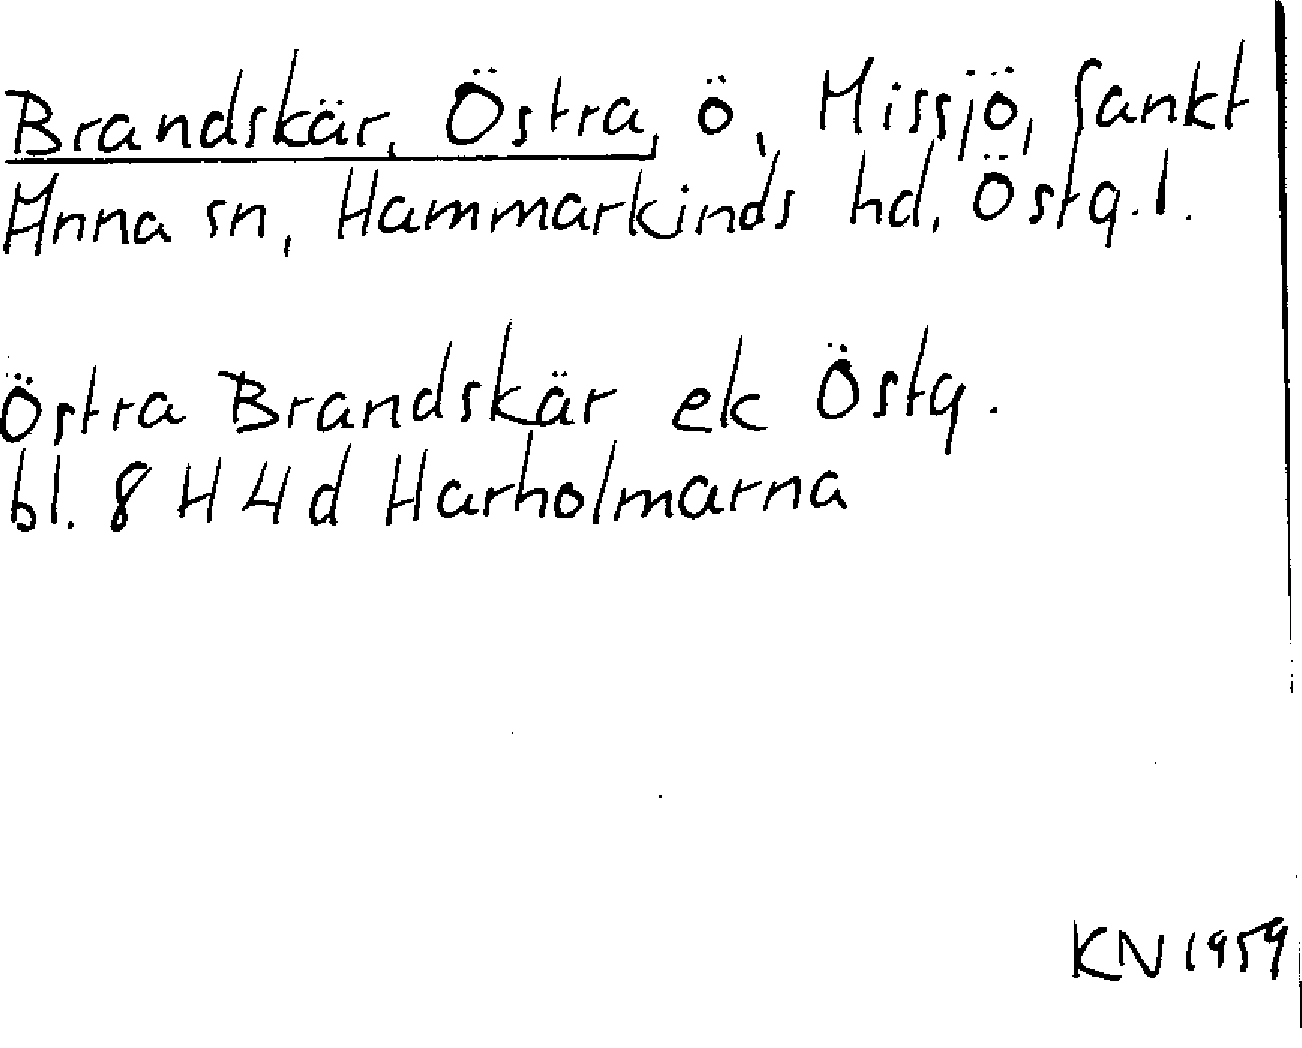 Brandskär, Östra, ö, Missjö, Sankt
Anna sn, Hammarkinds hd, Östg.l.
Östra Brandskär ek Östg.
bl. 8 H 4d Harholmarna
KN 1959